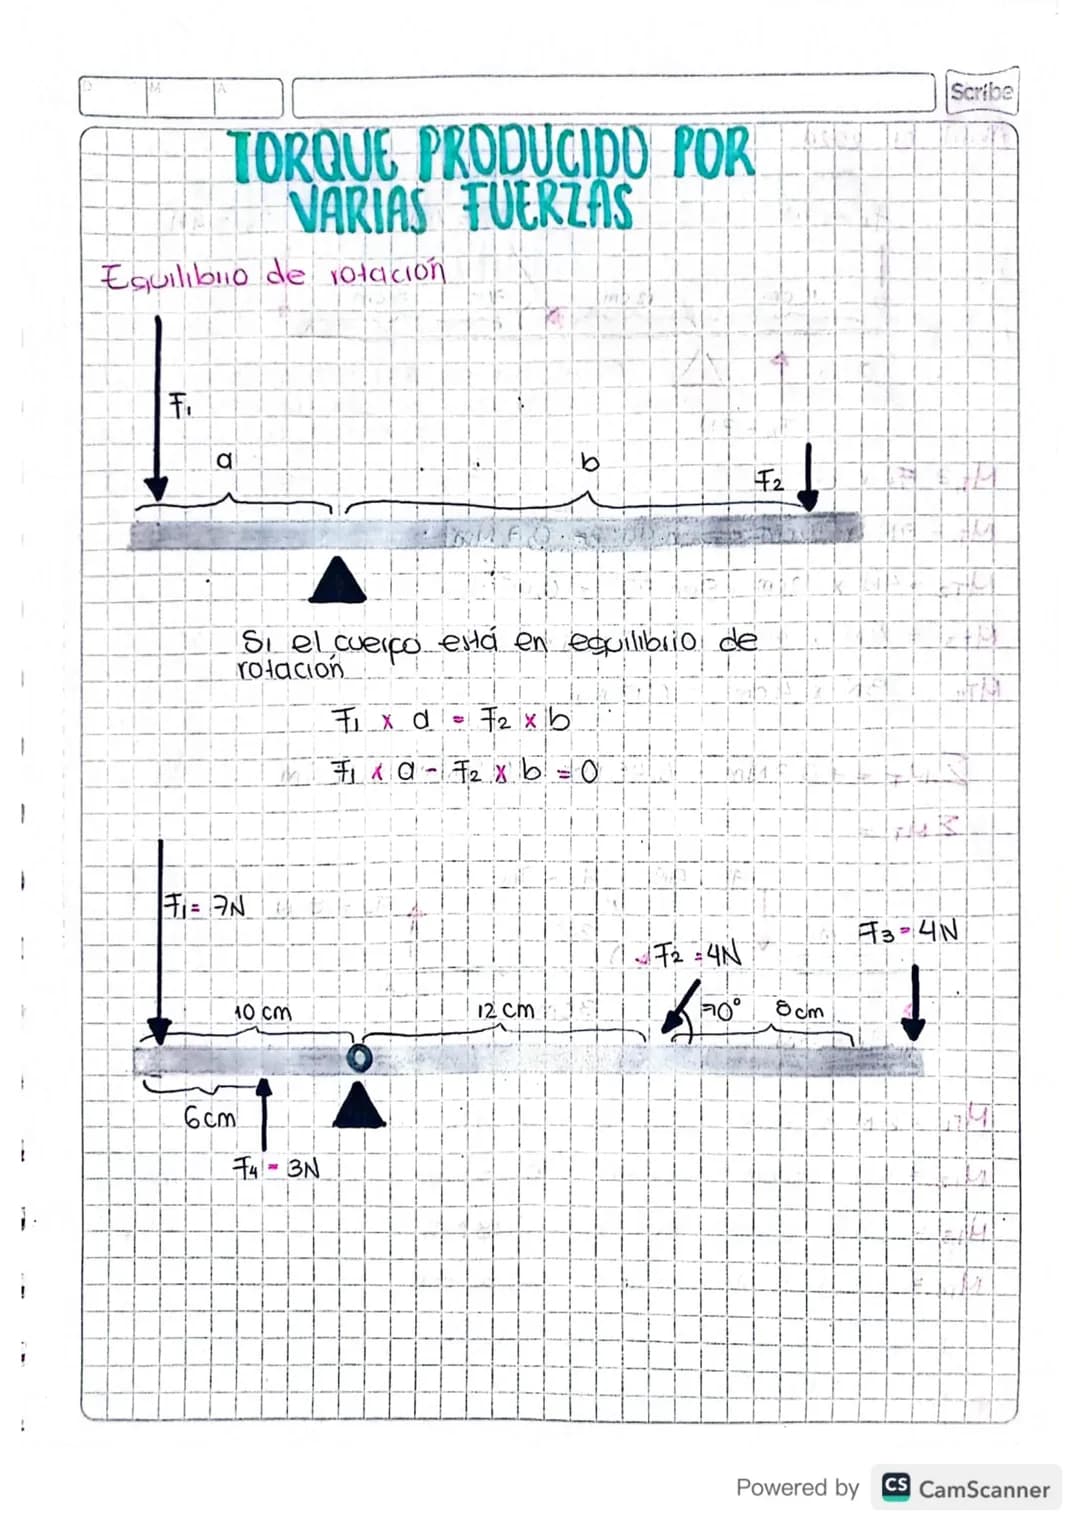 D M A
Scribe
TORQUE PRODUCIDO POR
VARIAS FUERZAS
Equilibrio de rotación
F₁
a
b
F₂
Si el cuerpo está en equilibrio de
rotación
F₁ x a = F₂ x b
F₁ x a - F₂ x b = 0
F₁ = 7N
F₂ = 4N
F₃ = 4N
10 cm
12 cm
70°
8cm
6cm
F₄ = 3N
Powered by CS CamScanner